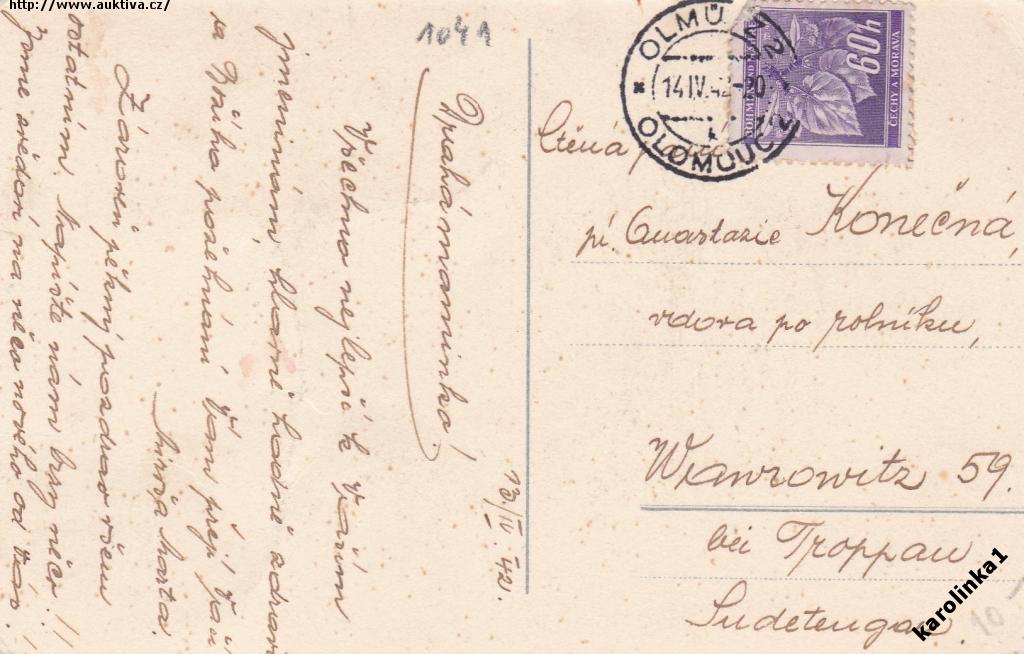 http://www.auktiva.cz/
1041
13/IV. 42.
Drahá maminko!
Všechno nejlepší k Vašim
jmeninám, hlavně hodně zdraví
a Božího požehnání Vám přejí Vaši
Mirča Marta.
Zároveň pěkný pozdrav všem
ostatním. Napište nám brzy něco!!
Jsme zvědaví na něco nového od Vás!
OLMÜTZ 2
14.IV.42-20
OLOMOUC 2
BÖHMEN UND
60h
ČECHY A MORAVA
Ctěná paní
pí. Anastazie Konečná,
vdova po rolníku,
Wawrowitz 59.
bei Troppau
Sudetengau.
karolinka1
10